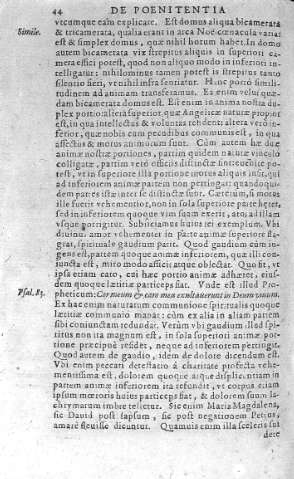 44 DE POENITENTIA
vtcumque eam explicare. Est domus aliqua bicamerata
Simile. & tricamerata, qualia erant in arca Noë cœnacula variaː
est & simplex domus, quæ nihil horum habet. In domo
autem bicamerata vix strepitus aliquis in superiori ca
mera effici potest, quod non aliquo modo in inferiori in-
telligatur: nihilominus tamen potest is strepitus tanto
silentio fieri, vt nihil infra sentiatur. Hinc porrò simili-
tudinem ad animam transferamus. Ea enim velut quæ-
dam bicamerata domus est. Est enim in anima nostra du-
plex portio altera superior, quæ Angelicæ naturæ propior
est, in qua intellectus & voluntas resident: altera verò in-
ferior, quæ nobis cum pecudibus communis est, in qua
affectus & motus animorum sunt. Cùm autem hæ duæ
animæ nostræ portiones, partim quidem naturæ vinculo
colligatæ, partim verò officiis distinctæ sint
rest, vt in superiore illa portione motus aliquis insit, qui
ad inferiorem animæ partem non pertingat: quandoqui-
dem partes istæ inter se distinctæ sunt. Cæterùm, si motus
ille fuerit vehementior, non in sola superiore parte hæret,
sed in inferiorem quoque vim suam exerit, atque ad illam
vsque porrigitur. Subiiciamus huius rei exemplum. Vbi
diuinus amor vehementer in parte animæ superiore fla
grat, spirituale gaudium parit. Quod gaudium cùm in-
gens est, partem quoque animæ inferiorem, quæ illi con-
iuncta est, miro modo afficit atque oblectat. Quo fit, vt
ipsa etiam caro, cui hæc portio animæ adhæret, eius-
dem quoque lætitiæ particeps fiat. Vnde est illud Pro-
Psal. 83. pheticum: Cor meum & caro mea exultauerunt in Deum viuum.
Ex hac enim naturarum communione spiritualis quoque
lætitiæ communio manat: cùm ex alia in aliam partem
sibi coniunctam redundat. Verùm vbi gaudium illud spi-
ritus non ita magnum est, in sola superiori animæ por-
tione præcipuè residet, neque ad inferiorem pertingit.
Quod autem de gaudio, idem de dolore dicendum est.
Vbi enim peccati detestatio à charitate profecta vehe-
mentissima est, dolorem quoque atque displicentiam in
partem animæ inferiorem ita refundit, vt corpus etiam
ipsum mœroris huius particeps fiat, & dolorem suum la-
chrymarum imbre testetur. Sic enim Maria Magdalena,
sic Dauid post lapsum, sic post negationem Petrus,
amarè fleuisse dicuntur. Quamuis enim illa sceleris sui
dete